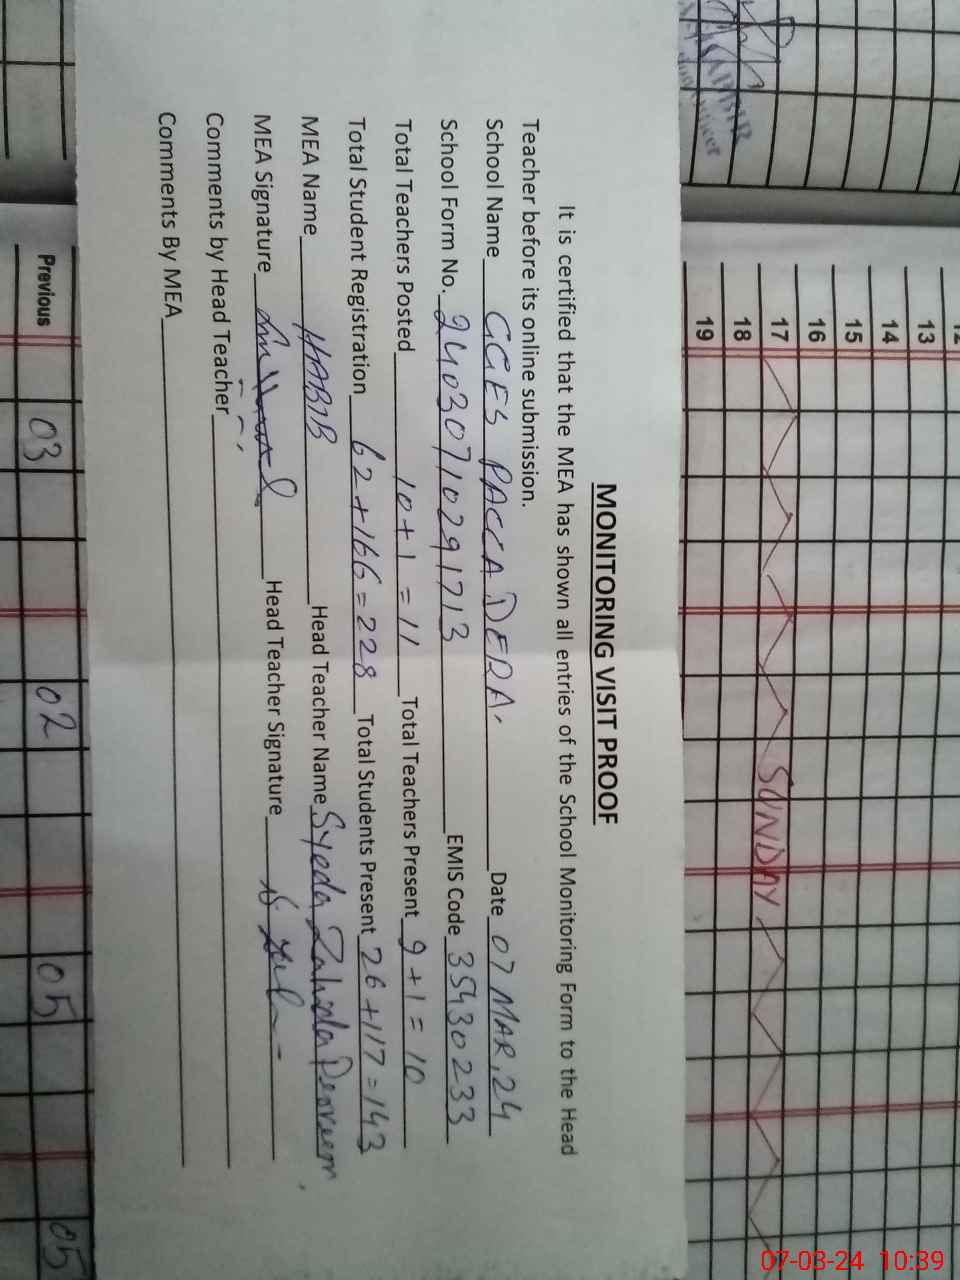 MONITORING VISIT PROOF
It is certified that the MEA has shown all entries of the School Monitoring Form to the Head
Teacher before its online submission.
School Name GGES PACCA DERA. Date 07 MAR, 24
School Form No. 24030710291713 EMIS Code 35430233
Total Teachers Posted 10+1 = 11 Total Teachers Present 9+1 = 10
Total Student Registration 62+166=228 Total Students Present 26+117=143
MEA Name HABIB Head Teacher Name Syeda Zahida Perveen
MEA Signature Head Teacher Signature
Comments by Head Teacher
Comments By MEA
13
14
15
16
17
18
19
SUNDAY
Previous 03 02 05 05
07-03-24 10:39